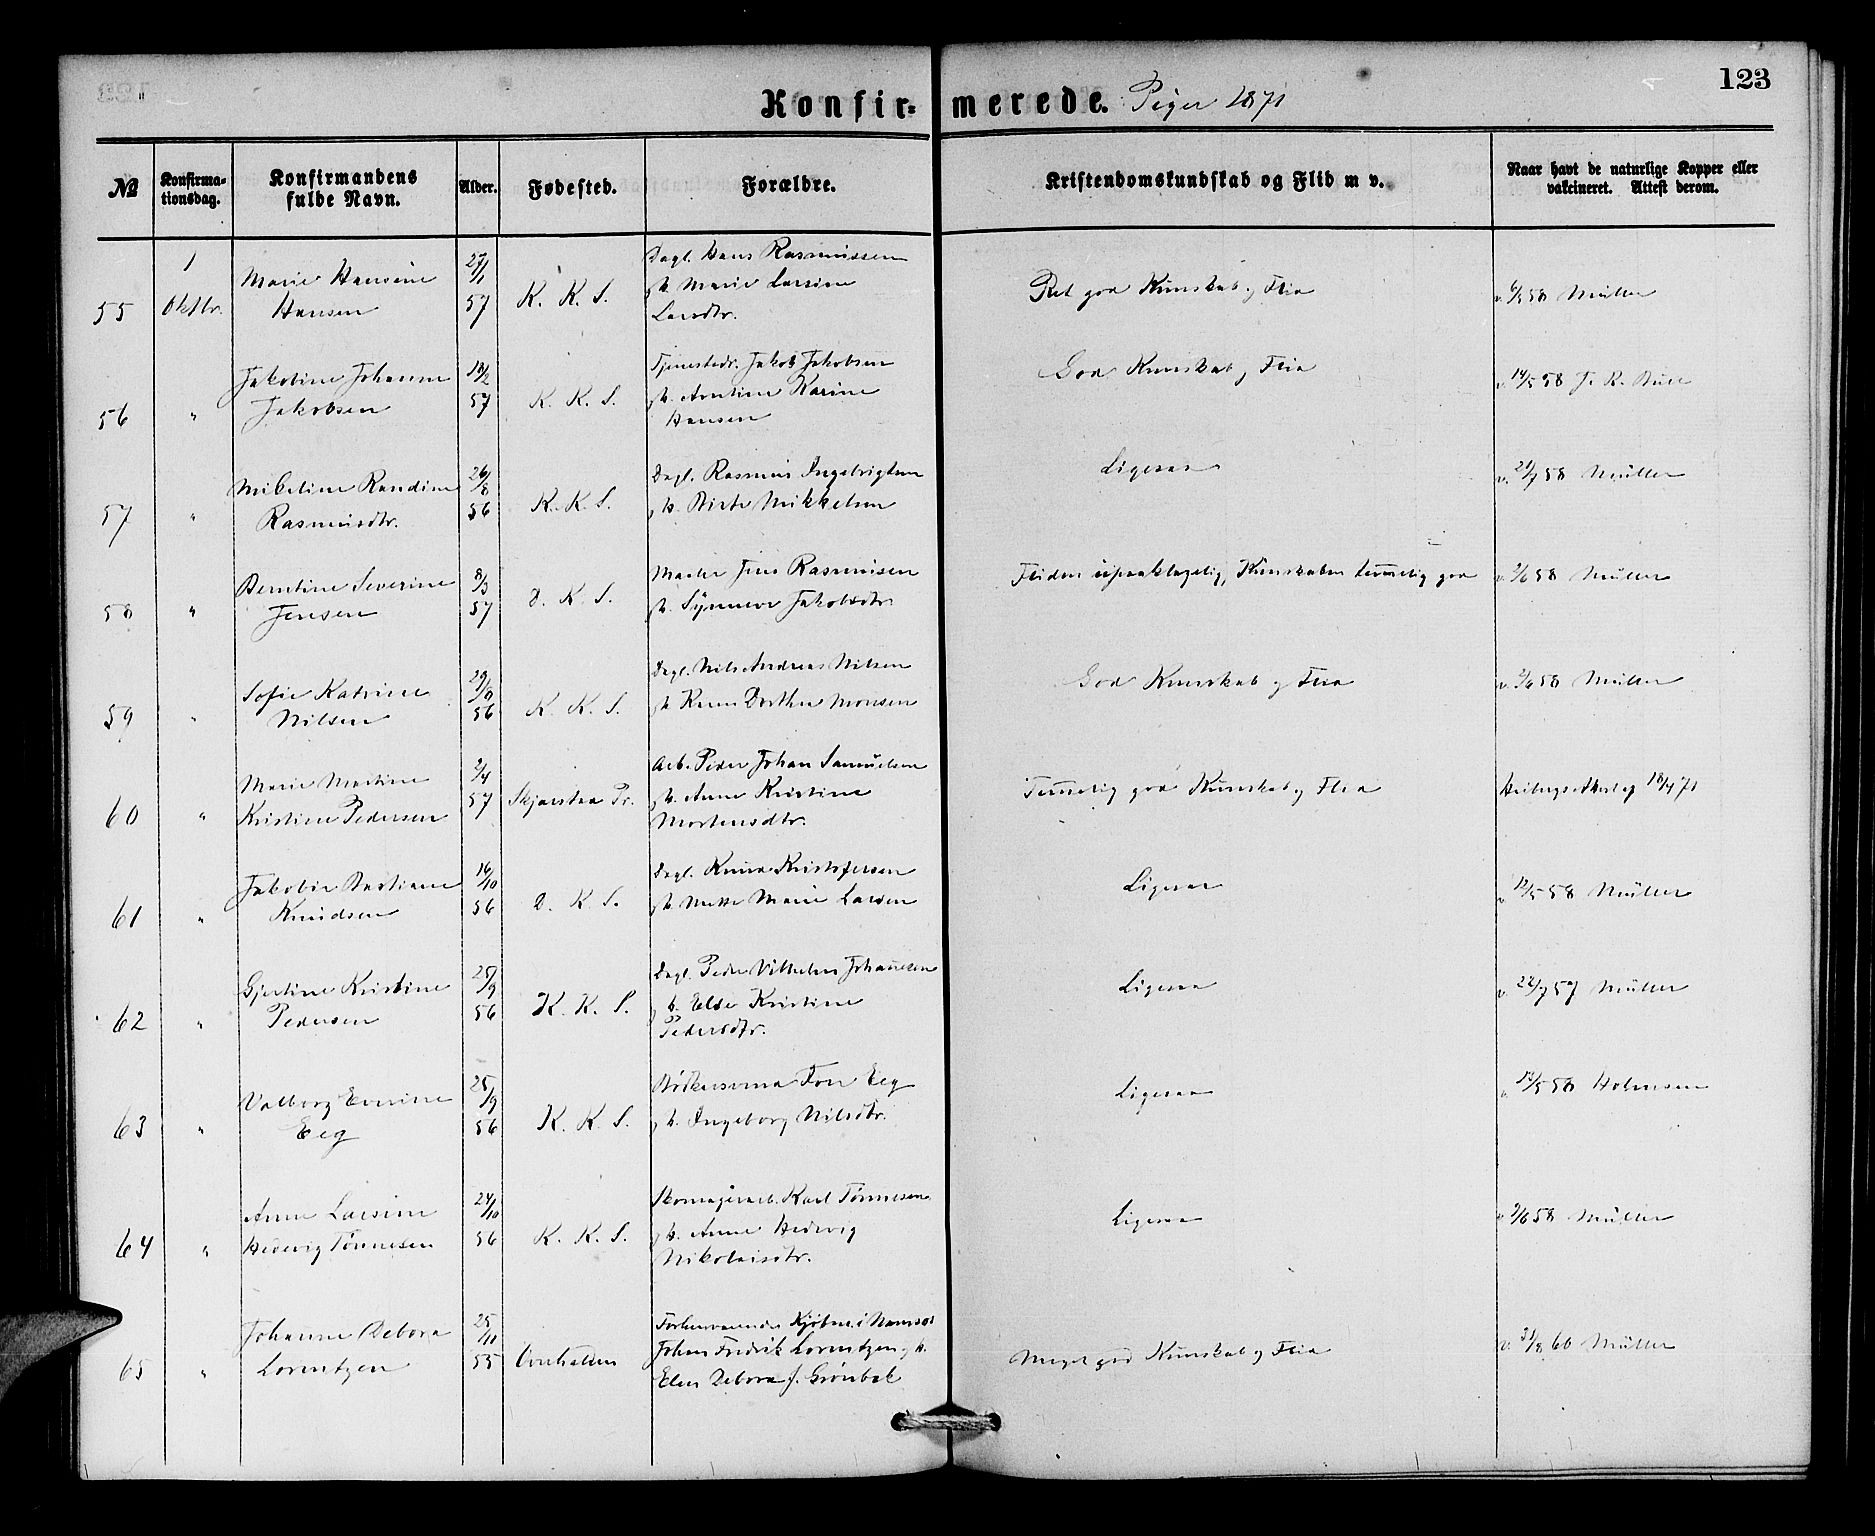 123
Konfirmerede. Piger 1871
No
Konfirmationsdag.
Konfirmandens fulde Navn.
Alder.
Fødested.
Forældre.
Kristendomskundskab og Flid m v.
Naar havt de naturlige Kopper eller vakcineret. Attest derom.
55 1 Oktbr. Marie Hansine Hansen 27/1 57 K. K. S. Dagl. Hans Rasmussen h. Marie Larsine Larsdtr. Ret god Kunskab og Flid v. 6/5 58 Müller
56 " Jakobine Johanne Jakobsen 18/2 57 K. K. S. Tjenestedr. Jakob Jakobsen h. Arntine Karine Hansen God Kunskab og Flid v. 14/5 58 J. R. Bull
57 " Mikeline Randine Rasmusdtr. 26/8 56 K. K. S. Dagl. Rasmus Ingebrigtsen h. Birte Mikkelsen Ligesaa v. 21/7 58 Müller
58 " Berntine Severine Jensen 8/3 57 D. K. S. Jens Rasmusen h. Synneve Jakobsdtr. Fliden upaaklagelig, Kunskaben temmelig god v. 2/6 58 Müller
59 " Sofie Katrine Nilsen 29/9 56 K. K. S. Dagl. Nils Andreas Nilsen h. Karen Dorthea Monsen God Kunskab og Flid v. 2/6 58 Müller
60 " Marie Martine Kristine Pedersen 2/4 57 Skjærstad Pr. Arb. Peder Johan Samuelsen h. Anne Kristine Mortensdtr. Temmelig god Kunskab og Flid 18/4 71
61 " Jakobie Bastiane Knudsen 16/10 56 D. K. S. Dagl. Knud Kristofersen h. Mette Marie Larsen Ligesaa v. 12/5 58 Müller
62 " Gjertine Kristine Pedersen 25/9 56 K. K. S. Dagl. Peder Vilhelm Johannesen h. Else Kristine Pedersdtr. Ligesaa v. 22/7 57 Müller
63 " Valborg Evenine Eeg 25/9 56 K. K. S. Bødkersvend Tore Eeg h. Ingeborg Nilsdtr. Ligesaa v. 18/5 58 Holmsen
64 " Anne Larsine Hedevig Tønnesen 24/10 56 K. K. S. Skomagerarb. Karl Tønnesen h. Anne Hedevig Nikolaisdtr. Ligesaa v. 2/6 58 Müller
65 " Johanne Debora Lorentzen 25/11 55 Overhalden Forhenværende Kjøbm. i Namsos Johan Fredrik Lorentzen og h. Elen Debora f. Grønbek Meget god Kunskab og Flid v. 31/8 60 Müller